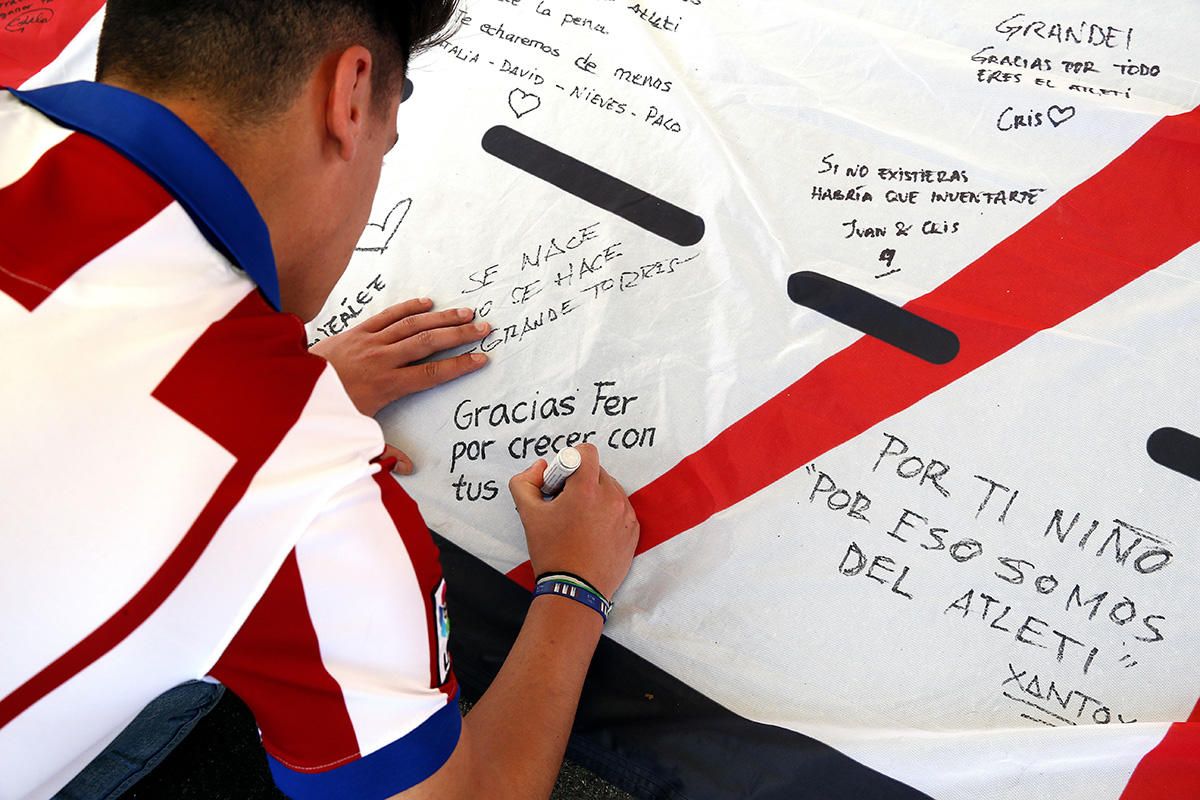 la pena.
Te echaremos de menos
NATALIA - DAVID - NIEVES - PACO
Atleti
GRANDE!
GRACIAS POR TODO
ERES EL ATLETI
CRIS
SI NO EXISTIERAS
HABRÍA QUE INVENTARTE
JUAN & CRIS
9
SE NACE
NO SE HACE
GRANDE TORRES
Gracias Fer
por crecer con
tus
POR TI NIÑO
"POR ESO SOMOS
DEL ATLETI"
XANTOY